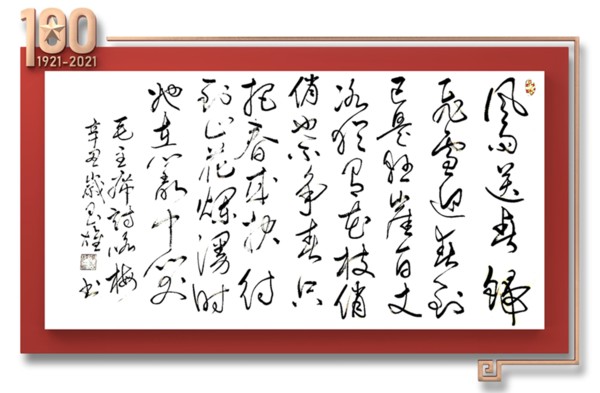 100
1921-2021
風雨送春歸
飛雪迎春到
已是懸崖百丈
冰猶有花枝俏
俏也不争春只
把春來報待
到山花爛漫時
她在叢中笑
毛主席詞咏梅
辛丑歲 雄書